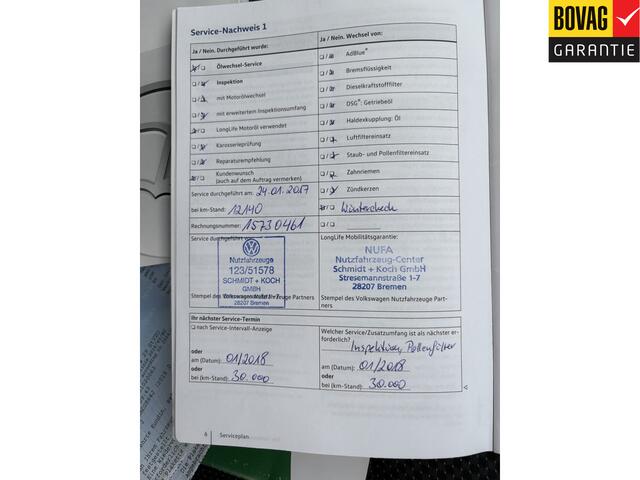 BOVAG
GARANTIE
Service-Nachweis 1
Ja / Nein. Durchgeführt wurde:
Ölwechsel-Service
Inspektion
mit Motorölwechsel
mit erweitertem Inspektionsumfang
LongLife Motoröl verwendet
Karosserieprüfung
Reparaturempfehlung
Kundenwunsch
(auch auf dem Auftrag vermerken)
Service durchgeführt am: 24.01.2017
bei km-Stand: 12140
Rechnungsnummer: 15730461
Service durchgeführt von:
Nutzfahrzeuge
123/51578
SCHMIDT + KOCH
GMBH
Stresemannstr. 1-7
28207 Bremen
Stempel des Volkswagen Nutzfahrzeuge Partners
Ja / Nein. Wechsel von:
AdBlue®
Bremsflüssigkeit
Dieselkraftstofffilter
DSG®: Getriebeöl
Haldexkupplung: Öl
Luftfiltereinsatz
Staub- und Pollenfiltereinsatz
Zahnriemen
Zündkerzen
Wintercheck
LongLife Mobilitätsgarantie:
NUFA
Nutzfahrzeug-Center
Schmidt + Koch GmbH
Stresemannstraße 1-7
28207 Bremen
Stempel des Volkswagen Nutzfahrzeuge Part-
ners
Ihr nächster Service-Termin
nach Service-Intervall-Anzeige
oder
am (Datum): 01/2018
oder
bei (km-Stand): 30.000
Welcher Service/Zusatzumfang ist als nächster er-
forderlich?
Inspektion, Pollenfilter
am (Datum): 01/2018
oder
bei (km-Stand): 30.000
6 Serviceplan